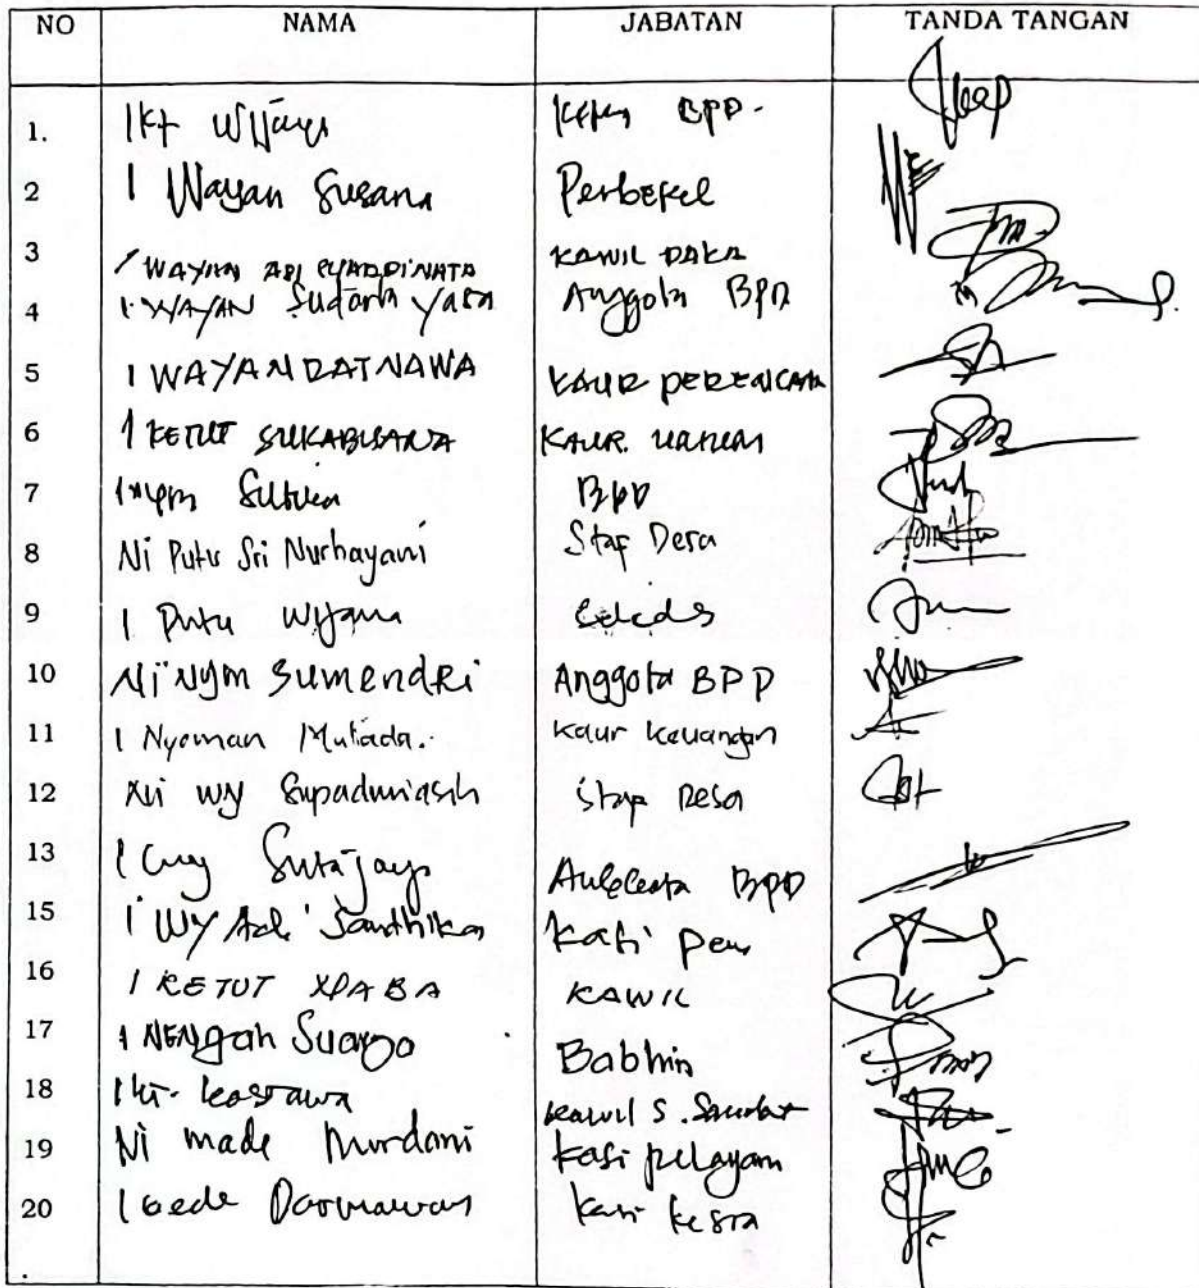 NO NAMA JABATAN TANDA TANGAN
1. I Kt Wijaya Ketua BPD.
2 I Wayan Susana Perbekel
3 I WAYAN ADI KAWIL DAKA
4 I WAYAN Sudarta Yasa Anggota BPD
5 I WAYAN RATNAWA KAUR PERENCANA
6 I KETUT SUKABUSANA KAUR.
7 BPD
8 Ni Putu Sri Nurhayani Staf Desa
9 I Putu Wijana Sekdes
10 Ni Nym Sumendri Anggota BPD
11 I Nyoman Muliada. Kaur Keuangan
12 Ni Wy Supadmiasih Staf Desa
13 I Sutajaya BPD
15 I Wy Adi Santhika Kasi Pem
16 I KETUT KAWIL
17 I NENgah Suarga Babhin
18 I Kt. Kastawa Kawil S.
19 Ni Made Murdani Kasi pelayan
20 I Gede Darmawan Kasi Kesra